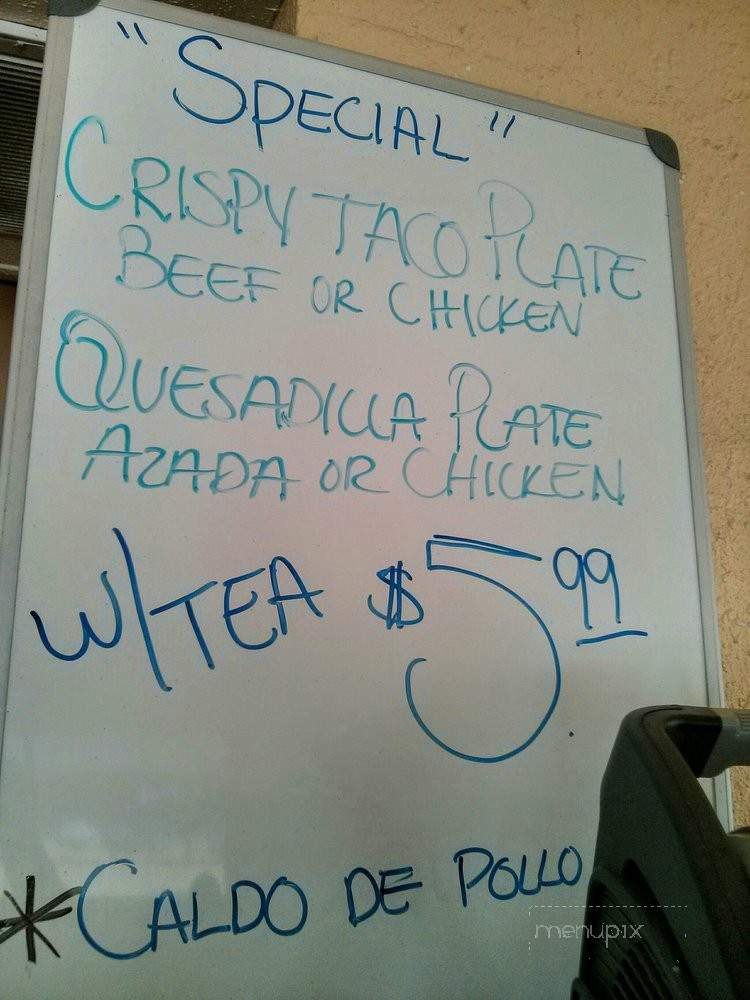 "SPECIAL"
CRISPY TACO PLATE
BEEF OR CHICKEN
QUESADILLA PLATE
AZADA OR CHICKEN
W/TEA $5.99
*CALDO DE POLLO
menupix